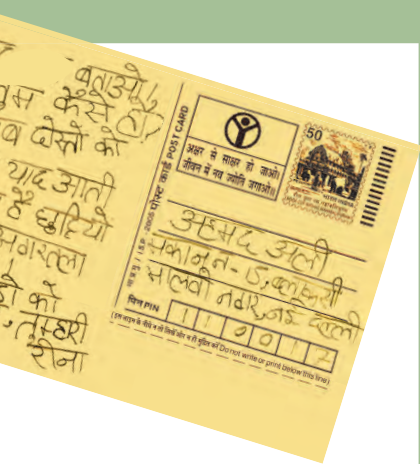 बताओ!
तुम कैसे हो?
दोस्तों को
याद आती
है छुट्टियो
अगरतला
को
तुम्हारी
रीना
POST CARD
पोस्ट कार्ड
50
अक्षर से साक्षर हो जाओ।
जीवन में नव ज्योति जगाओ॥
अहमद अली
मालवी नगर, नई दिल्ली
पिन PIN 110017
(इस लाइन के नीचे न तो लिखें और न ही मुद्रित करें Do not write or print below this line)